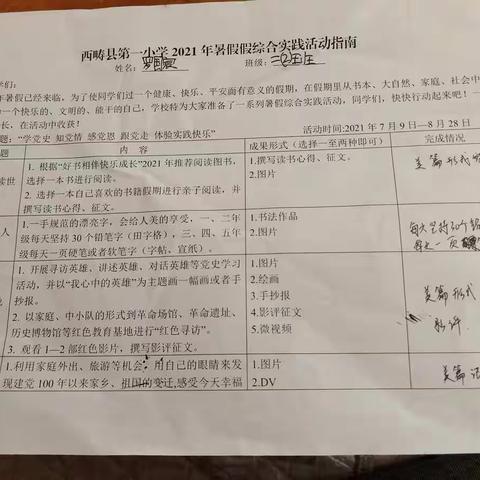 西畴县第一小学2021年暑假假综合实践活动指南
姓名：
班级：
们：
年暑假已经来临，为了使同学们过一个健康、快乐、平安而有意义的假期，在假期里从书本、大自然、家庭、社会中
一个快乐的、文明的、能干的自己，学校特为大家准备了一系列暑假综合实践活动，同学们，快快行动起来吧！一
长，在活动中收获！
题：“学党史 知党情 感党恩 跟党走 体验实践快乐”
活动时间:2021年7月9日—8月28日
题
内容
成果形式（选择一至两种即可）
完成情况
读世
1. 根据“好书相伴快乐成长”2021年推荐阅读图书，
选择一本书进行阅读。
2. 选择一本自己喜欢的书籍假期进行亲子阅读，并
撰写读书心得、征文。
1.撰写读书心得、征文。
2.图片
美篇形式
人
1.一手规范的漂亮字，会给人美的享受，一、二年
级每天坚持30个铅笔字（田字格），三、四、五年
级每天一页硬笔或者软笔字（字帖、宣纸）。
1.书法作品
2.图片
每天坚持30个铅
每天一页
1. 开展寻访英雄、讲述英雄、对话英雄等党史学习
活动，并以“我心中的英雄”为主题画一幅画或者手
抄报。
2. 以家庭、中小队的形式到革命场馆、革命遗址、
历史博物馆等红色教育基地进行“红色寻访”。
3. 观看1—2部红色影片，撰写影评征文。
1.图片
2.绘画
3.手抄报
4.影评征文
5.微视频
美篇形式
影评
1.利用家庭外出、旅游等机会，用自己的眼睛来发
现建党100年以来家乡、祖国的变迁,感受今天幸福
1.图片
2.DV
美篇